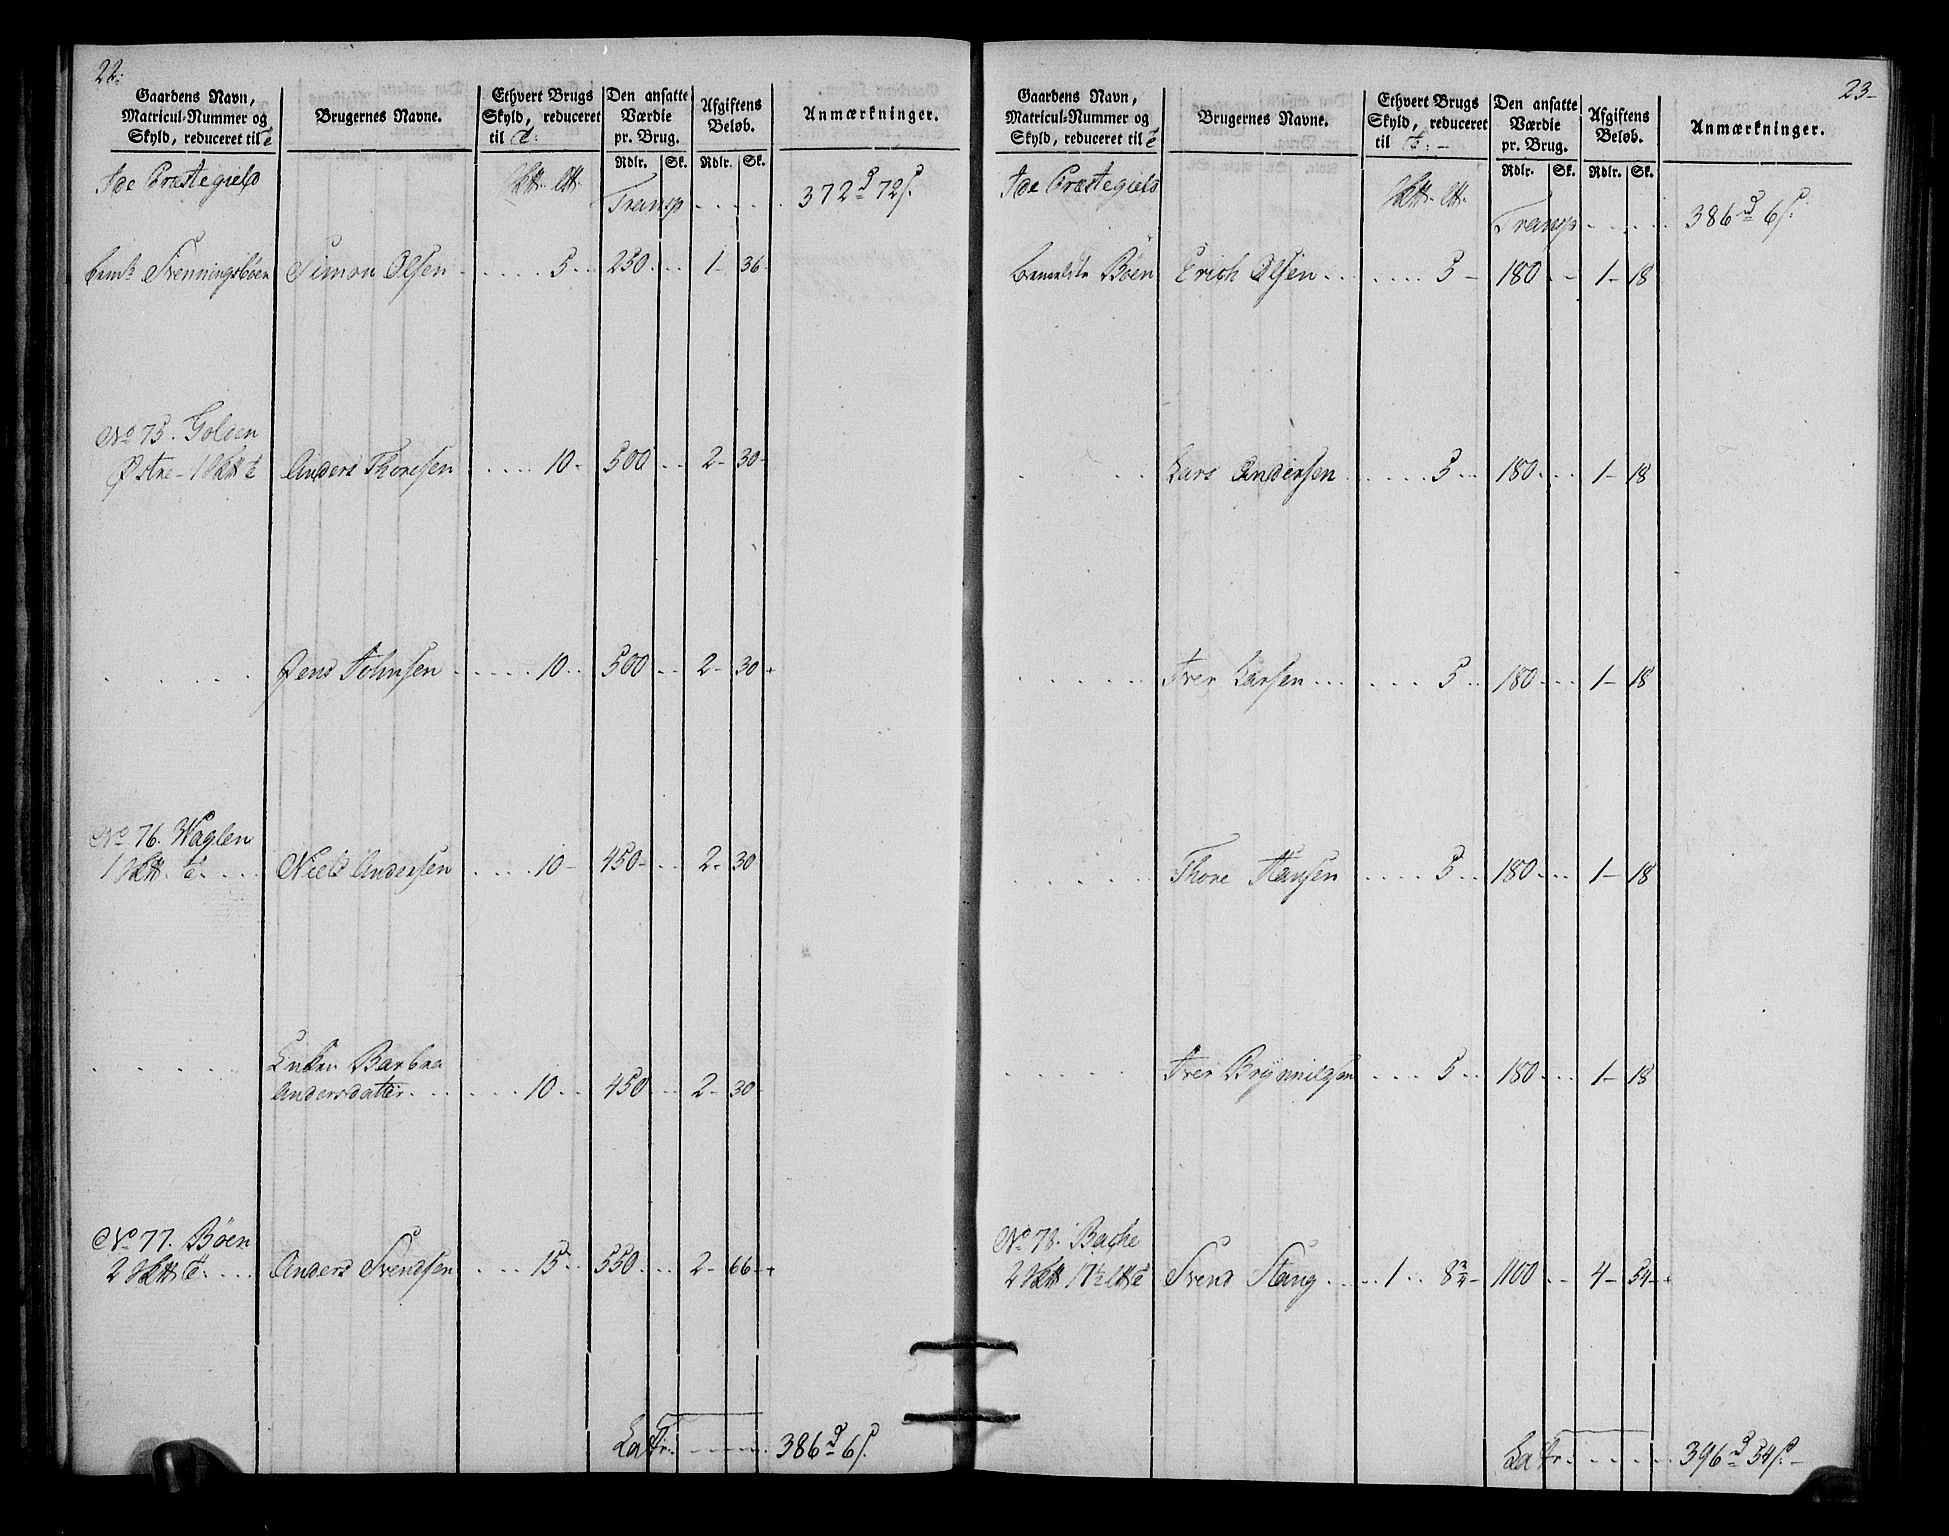 22.
Gaardens Navn,
Matricul-Nummer og
Skyld, reduceret til
Brugernes Navne.
Ethvert Brugs
Skyld, reduceret
til
Den ansatte
Værdie
pr. Brug.
Rdlr. Sk.
Afgiftens
Beløb.
Rdlr. Sk.
Anmærkninger.
Ide Præstegield
Transp . . . . . 372 72
Svenningsbøen Simon Olsen . . . . . 5 . . 250 . . . 1 - 36
No 75. Goloen
Østre - 1 Anders Thoresen . . . . 10 - 500 . . 2 - 30 -
. . . . . Jens Johnsen . . . . . 10 . . 500 . . 2 - 30
No 76. Waglen
1 Niels Andersen . . . . 10 - 450 - . . 2 - 30
. . . . . Barbra
Andersdatter . . . . . . 10 . . 450 . . . 2 - 30
No 77. Böen
2 Anders Svendsen . . . . 15 . . 550 . . . 2 - 66
Latr. . . . . . 386 6
23-
Gaardens Navn,
Matricul-Nummer og
Skyld, reduceret til
Brugernes Navne.
Ethvert Brugs
Skyld, reduceret
til
Den ansatte
Værdie
pr. Brug.
Rdlr. Sk.
Afgiftens
Beløb.
Rdlr. Sk.
Anmærkninger.
Ide Præstegield
Transp . . . . . 386 6
Böen Erich Olsen . . . . . . 5 - 180 . . 1 - 18
. . . Lars Andersen . . . . . 5 . . 180 . . . 1 - 18
. . . . . Iver Larsen . . . . . . 5 . . 180 . . . 1 - 18
. . . . . Thore Hansen . . . . 5 . . 180 . . . 1 - 18
. . . . . Iver Brynnilsen . . . . 5 . . 180 . . . 1 - 18
No 78. Bache
2 17½ Svend Stang . . . . 1 . . 8¾ - 1100 . . 4 - 54
Latr. . . . . . 396 54